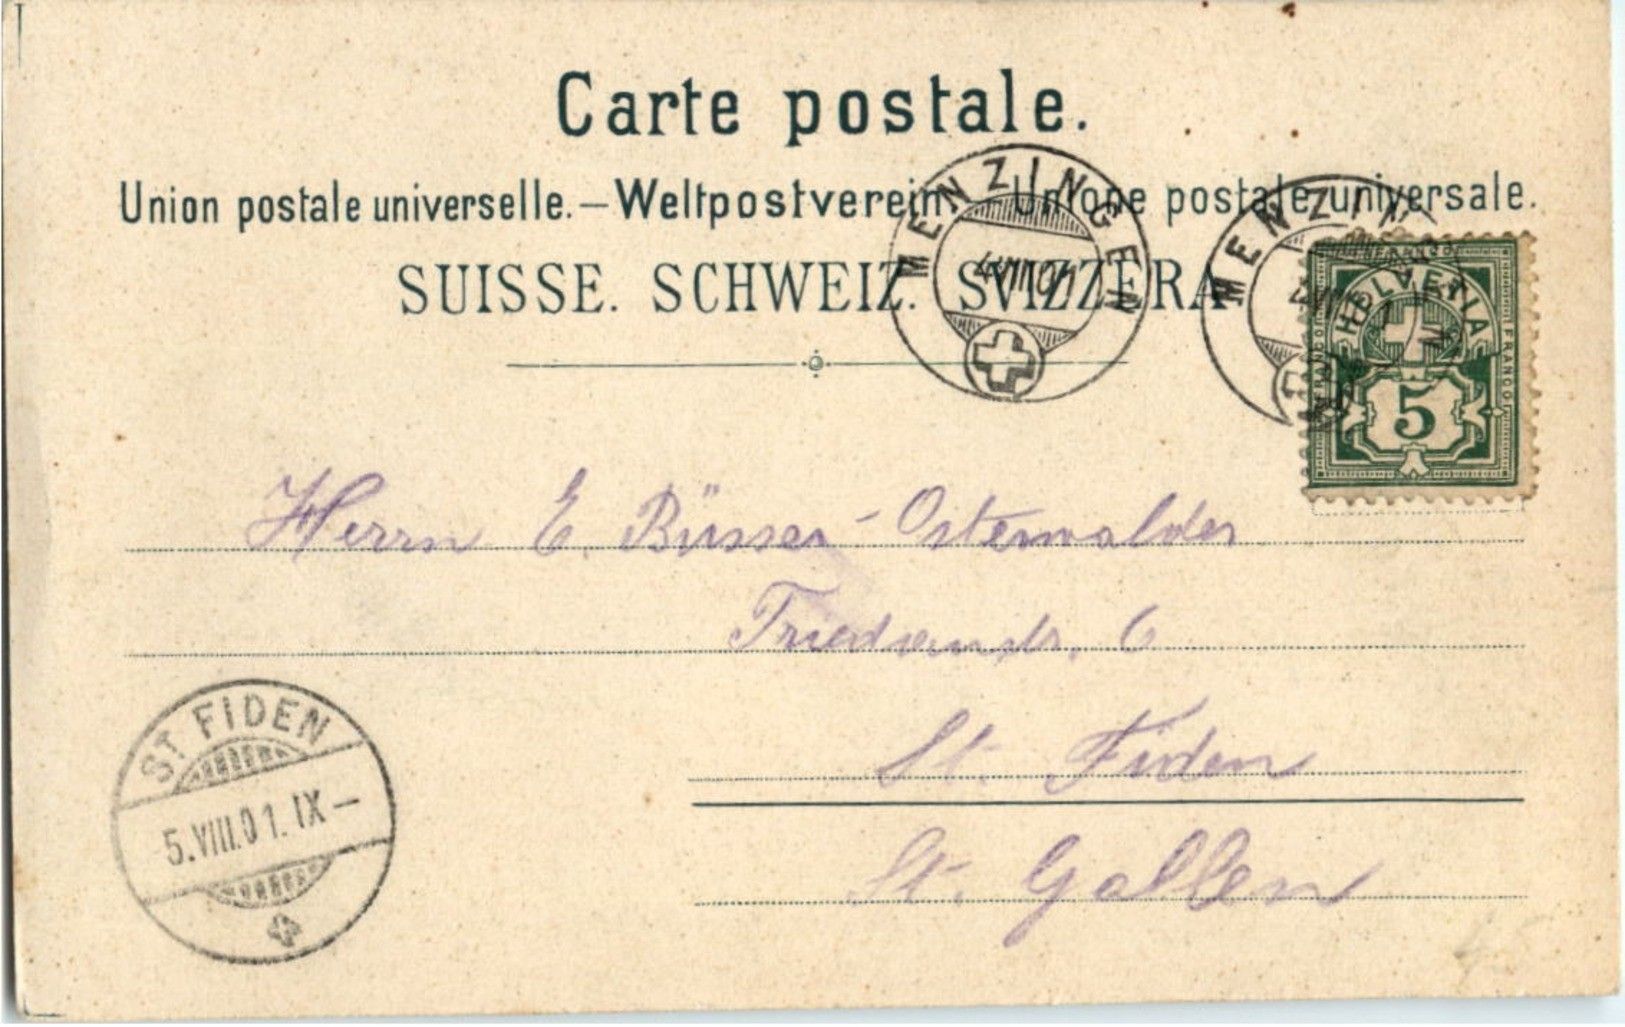 Carte postale.
Union postale universelle. — Weltpostverein. — Unione postale universale.
SUISSE. SCHWEIZ. SVIZZERA
MENZINGEN
4.VIII.01
MENZINGEN
HELVETIA
FRANCO
FRANCO
5
Herrn E. Büsser-Osterwalder
6
St. Fiden
St. Gallen
ST. FIDEN
5.VIII.01.IX—